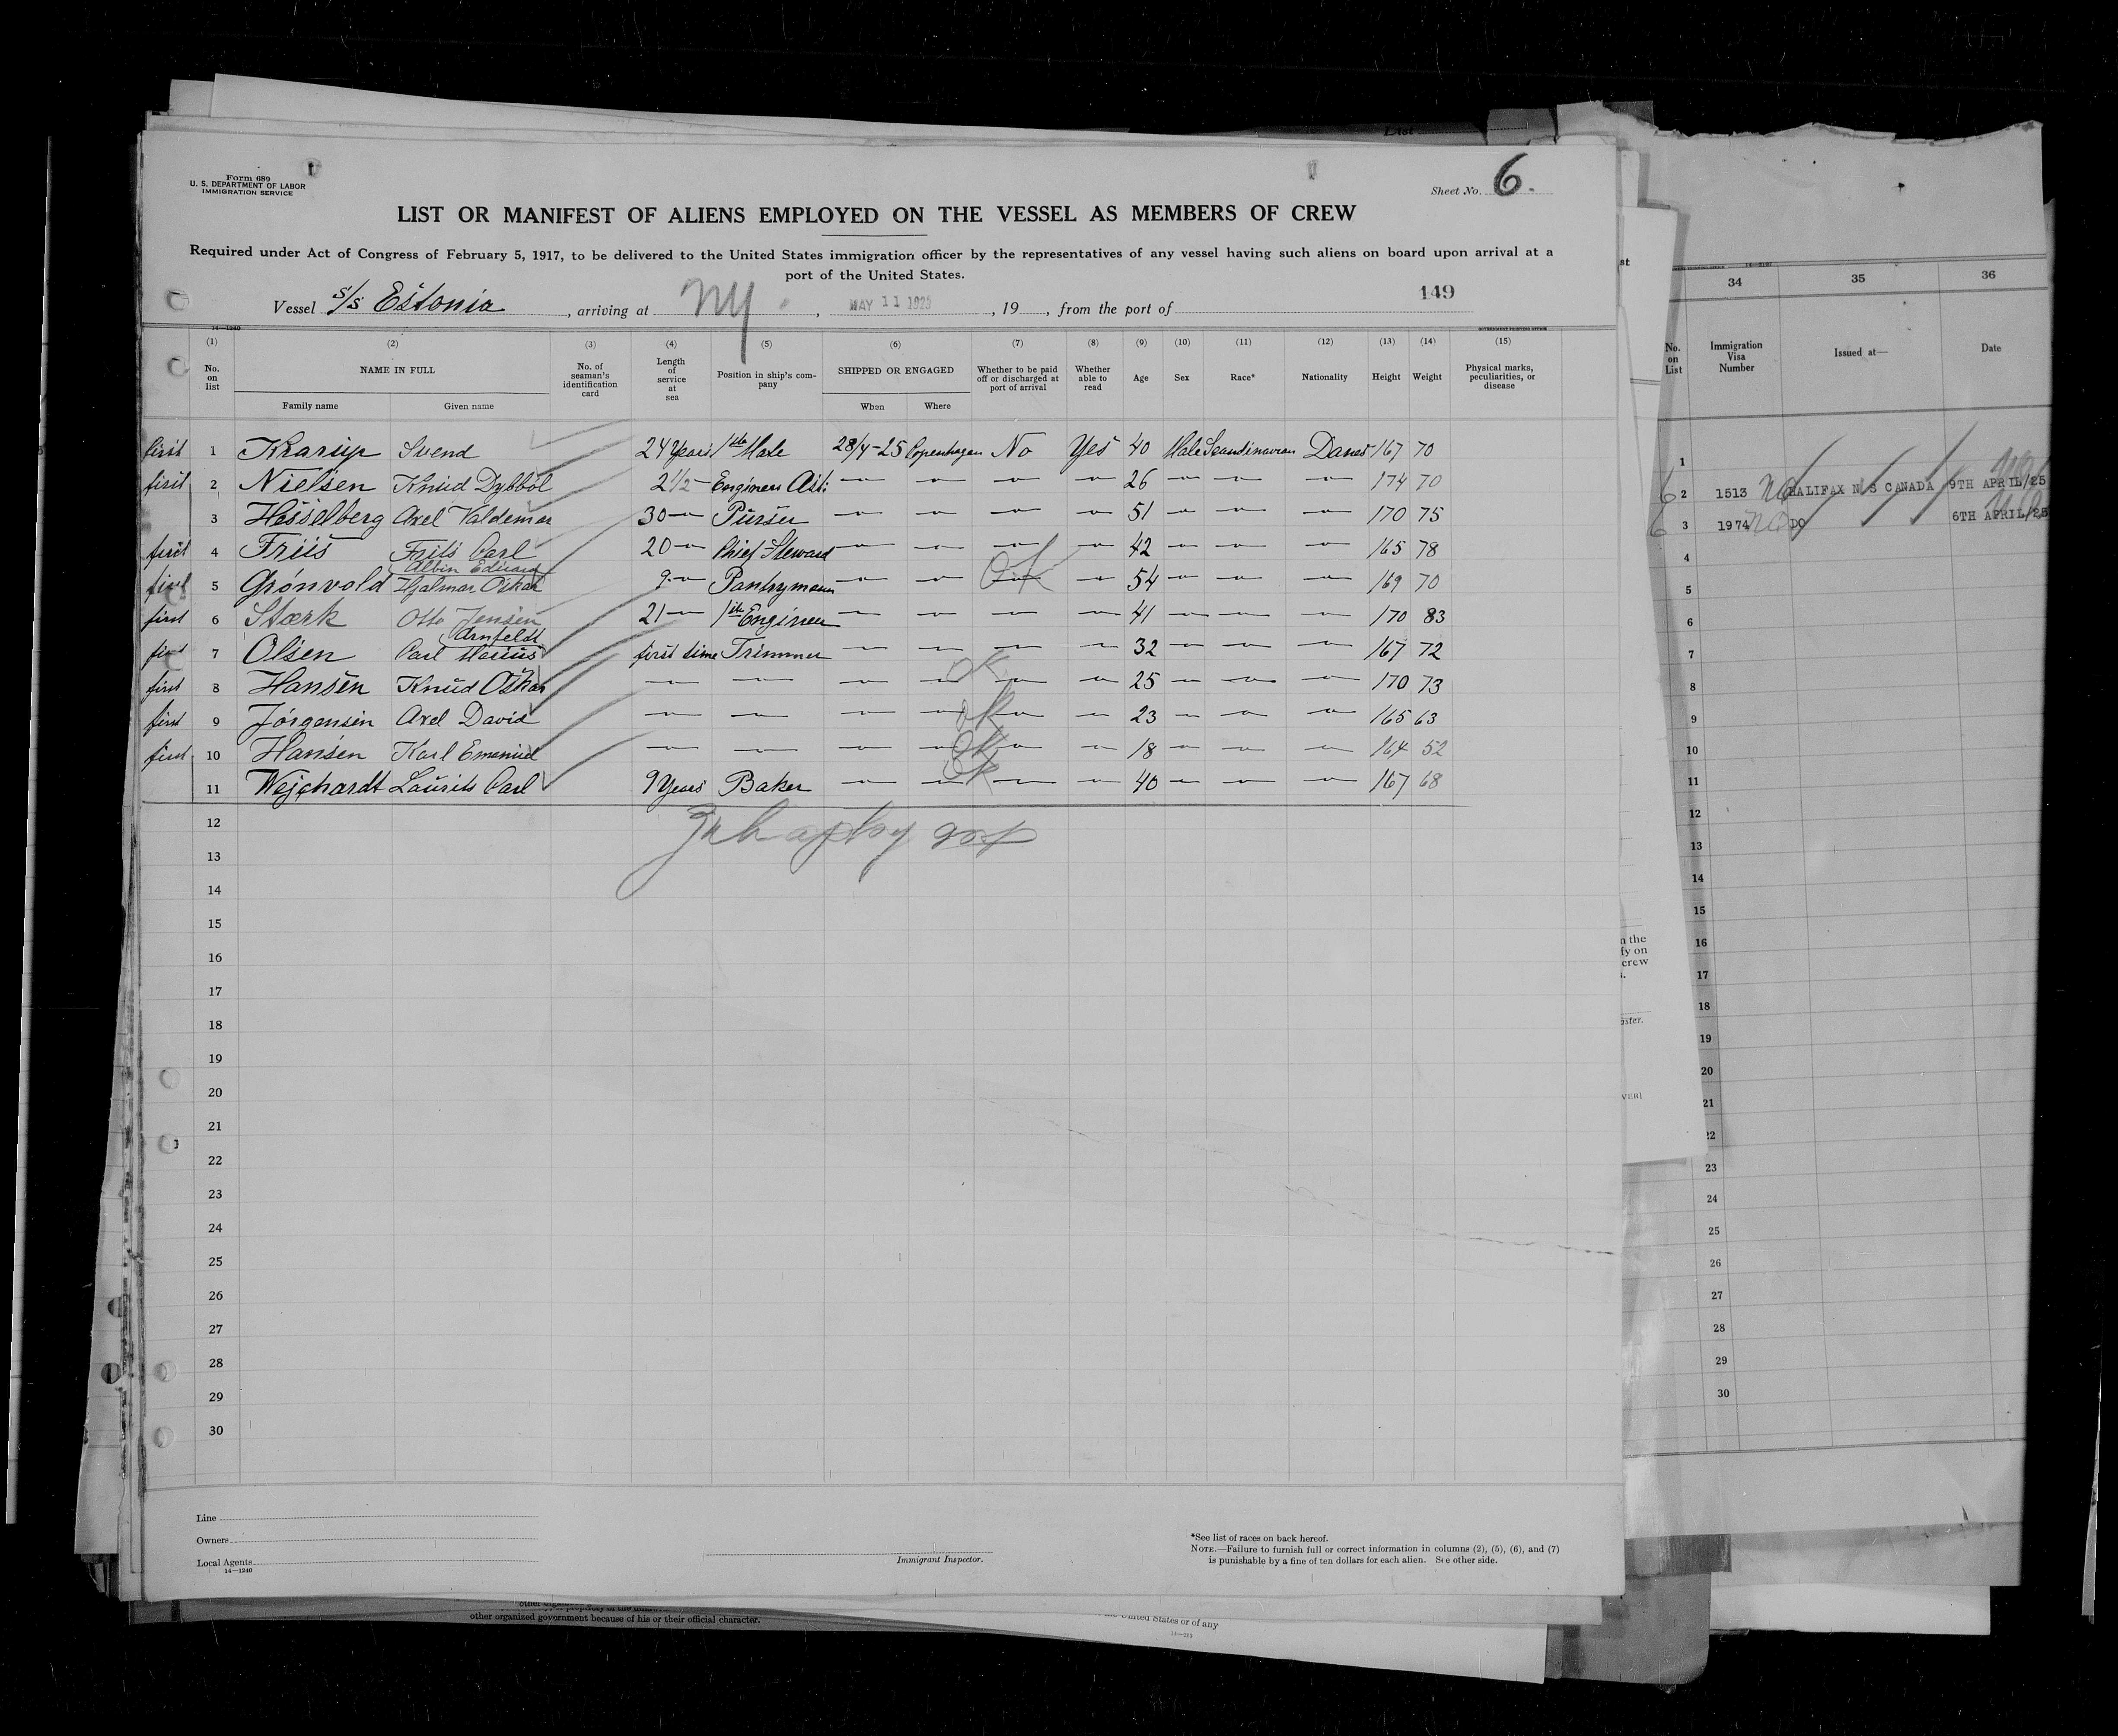 List
Form 689
U. S. DEPARTMENT OF LABOR
IMMIGRATION SERVICE
Sheet No. 6.
LIST OR MANIFEST OF ALIENS EMPLOYED ON THE VESSEL AS MEMBERS OF CREW
Required under Act of Congress of February 5, 1917, to be delivered to the United States immigration officer by the representatives of any vessel having such aliens on board upon arrival at a
port of the United States.
149
Vessel S/S Estonia, arriving at NY, MAY 11 1925, 19, from the port of
14—1240 GOVERNMENT PRINTING OFFICE
(1) (2) (3) (4) (5) (6) (7) (8) (9) (10) (11) (12) (13) (14) (15)
No. on list NAME IN FULL Family name Given name No. of seaman's identification card Length of service at sea Position in ship's company SHIPPED OR ENGAGED When Where Whether to be paid off or discharged at port of arrival Whether able to read Age Sex Race* Nationality Height Weight Physical marks, peculiarities, or disease
first 1 Krarup Svend 24 Years 1ste Mate 28/4-25 Copenhagen No Yes 40 Male Scandinavian Danes 167 70
first 2 Nielsen Knud Dybböl 2 1/2 — Engineer Ast: — — — — 26 — — — 174 70
3 Hesselberg Axel Valdemar 30 — Purser — — — — 51 — — — 170 75
first 4 Friis Frits Carl 20 — Chief Steward — — — — 42 — — — 165 78
Albin Eduard
first 5 Grónvold Hjalmar Oskar 9 — Pantryman — — — ok — 54 — — — 169 70
first 6 Stærk Otto Jensen 21 — 1ste Engineer — — — — 41 — — — 170 83
Arnfeldt
first 7 Olsen Carl Marius first time Trimmer — — — — 32 — — — 167 72
first 8 Hansen Knud Oskar — — — — ok — — 25 — — — 170 73
first 9 Jörgensen Axel David — — — — ok — — 23 — — — 165 63
first 10 Hansen Karl Emanuel — — — — ok — — 18 — — — 164 52
11 Wejchardt Laurits Carl 9 Years Baker — — ok — — 40 — — — 167 68
12
13
14
15
16
17
18
19
20
21
22
23
24
25
26
27
28
29
30
Line
Owners
Local Agents
14—1240
Immigrant Inspector.
*See list of races on back hereof.
NOTE.—Failure to furnish full or correct information in columns (2), (5), (6), and (7)
is punishable by a fine of ten dollars for each alien. See other side.
other organized government because of his or their official character.
the United States or of any
34 35 36
No. on List Immigration Visa Number Issued at— Date
1
6 2 1513 HALIFAX N S CANADA 9TH APRIL/25
6 3 1974 DO 6TH APRIL/25
4
5
6
7
8
9
10
11
12
13
14
15
16
17
18
19
20
21
22
23
24
25
26
27
28
29
30
n the
fy on
crew